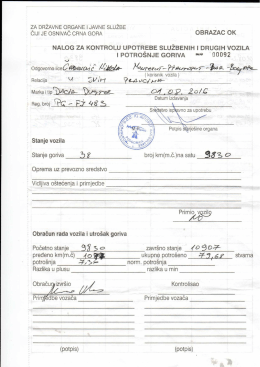 ZA DRŽAVNE ORGANE I JAVNE SLUŽBE
ČIJI JE OSNIVAČ CRNA GORA
OBRAZAC OK
NALOG ZA KONTROLU UPOTREBE SLUŽBENIH I DRUGIH VOZILA
I POTROŠNJE GORIVA 00092
Odgovorno lice
( korisnik vozila )
Relacija U SVIM PRAVCIMA
Tip i marka DACIA DUSTER 01.08.2016
Datum izdavanja
Reg. broj PG-FJ 483
Sredstvo ispravno za upotrebu
Potpis starješine organa
Stanje vozila
Stanje goriva 38 broj km(m.č.)na satu 9830
Oprema uz prevozno sredstvo
Vidljiva oštećenja i primjedbe
Primio vozilo
Obračun rada vozila i utrošak goriva
Početno stanje 9830 završno stanje 10907
pređeno km(m.č) 1077 ukupna potrošeno 79,68 stvarna
potrošnja normativ potrošnje
Razlika u plusu razlika u min
Obračun izvršio Kontrolisao
Primjedbe vozača Primjedbe vozača
(potpis) (potpis)